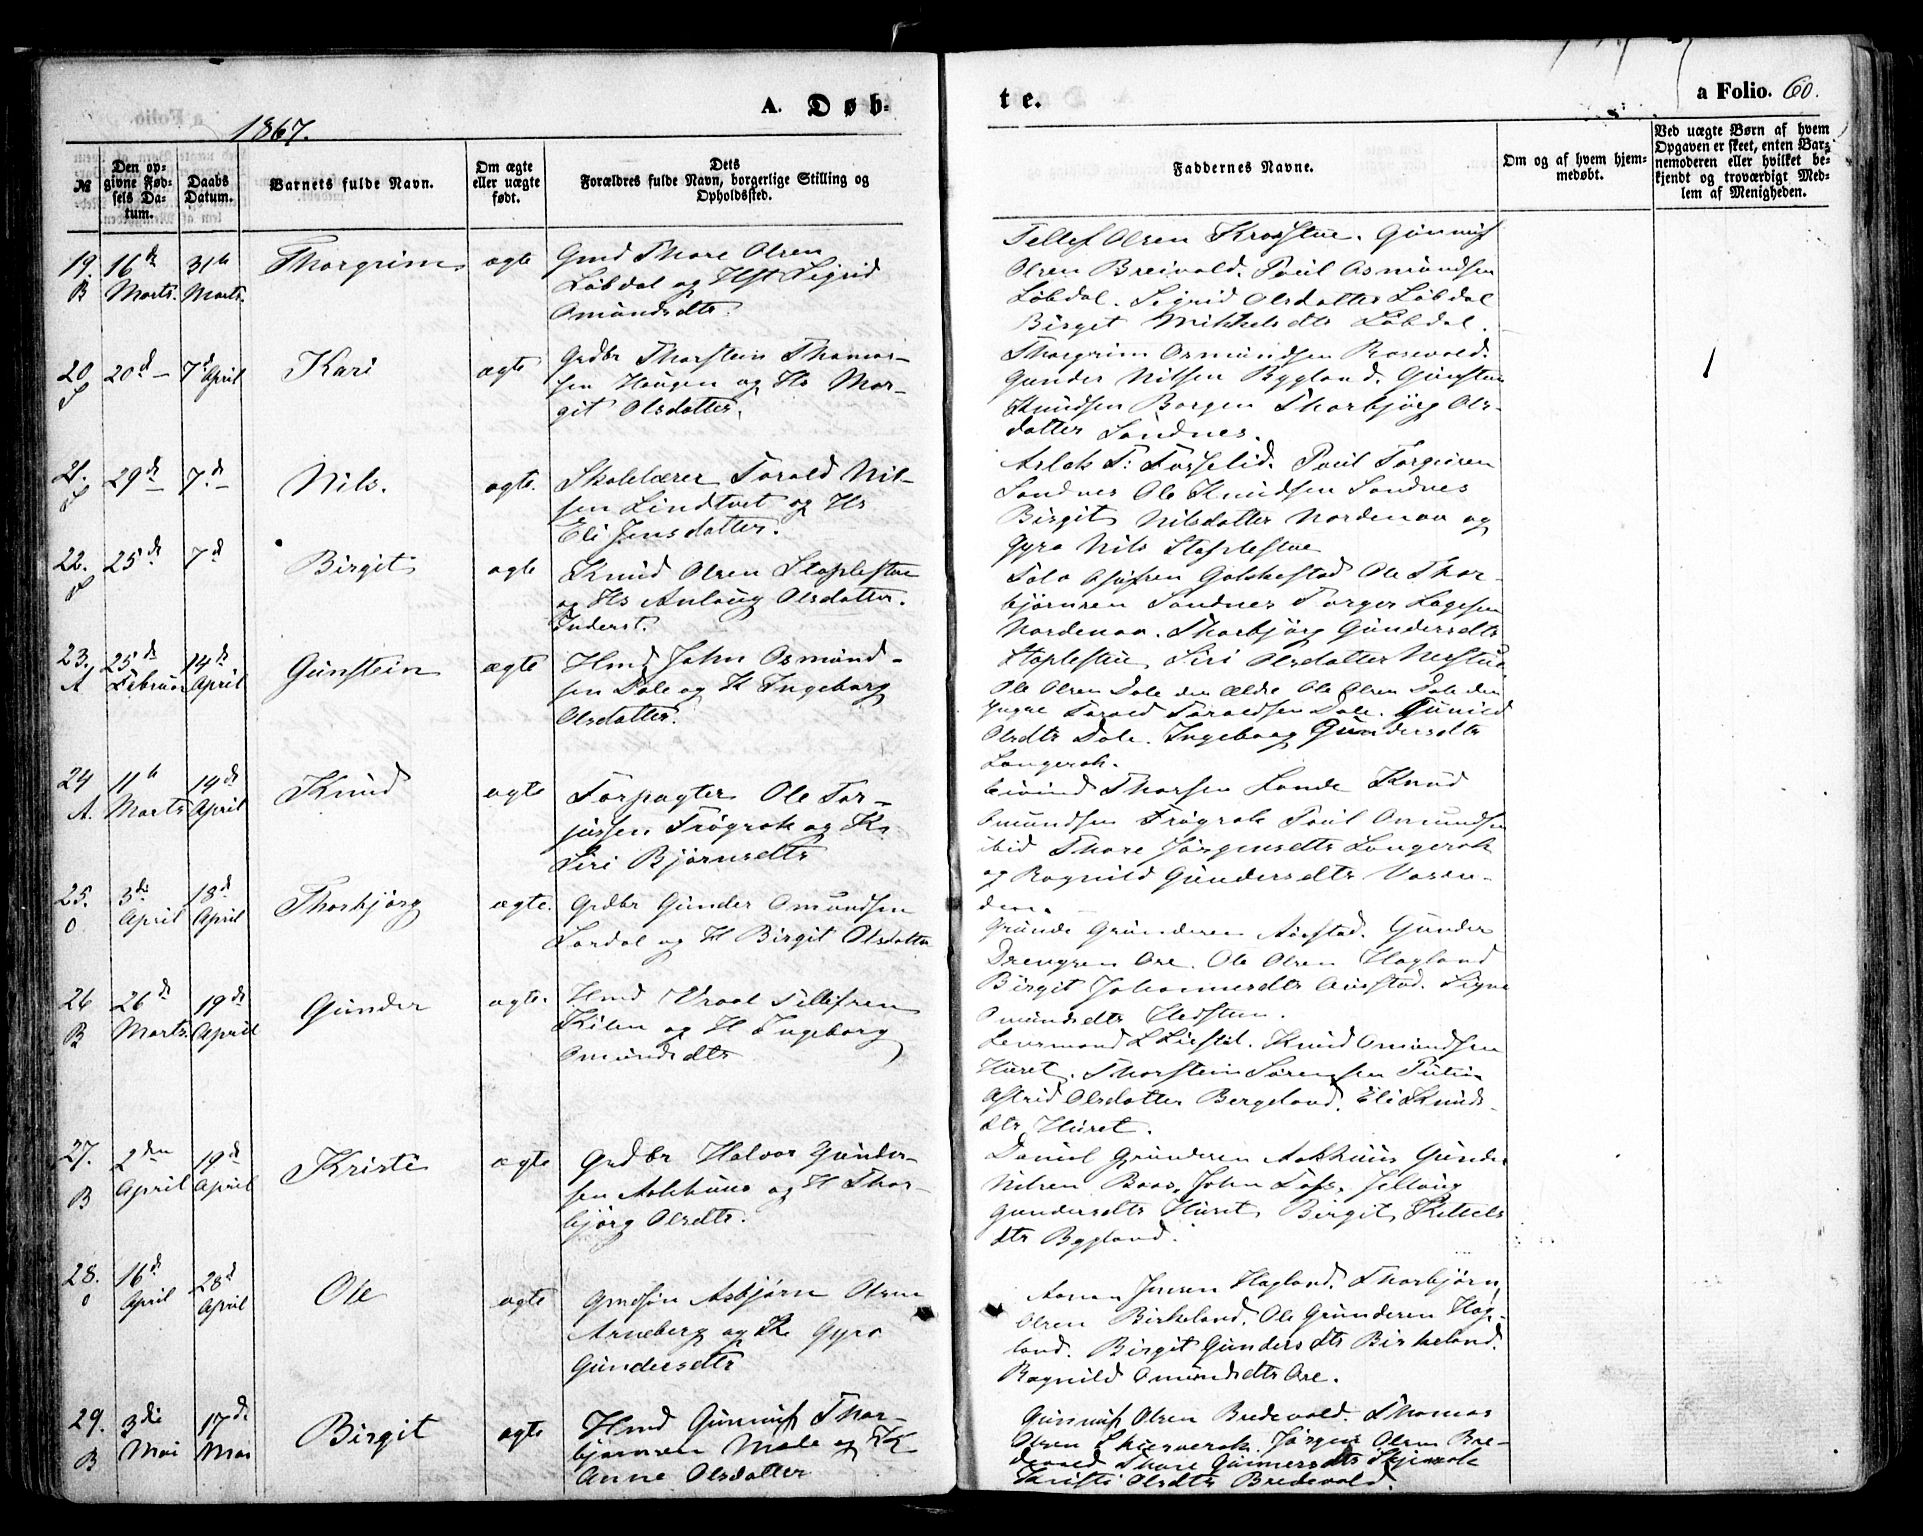 A. Døb-
te.
a Folio. 60.
1867.
№
Den op-
givne Fød-
sels Da-
tum.
Daabs
Datum.
Barnets fulde Navn.
Om ægte
eller uægte
født.
Dets
Forældres fulde Navn, borgerlige Stilling og
Opholdssted.
Faddernes Navne.
Om og af hvem hjem-
medøbt.
Ved uægte Børn af hvem
Opgaven er skeet, enten Bar-
nemoderen eller hvilket be-
kjendt og troværdigt Med-
lem af Menigheden.
19. 16de 31te Thorgrim ægte Gmd Thore Olsen
B Marts. Marts. Løbdal og Hst Sigrid
Omundsdtr.
Tellef Olsen Krosstue. Gunnuf
Olsen Breivold. Poul Asmundsen
Løbdal. Sigrid Olsdatter Løbdal
Birget Mikkelsdtr Løbdal.
20 20de — 7de April Kari ægte Grdbr Thorstein Thomas-
sen Haugen og Hs Mar-
git Olsdatter.
Thorgrim Osmundsen Rosevold.
Gunder Nilsen Bygland. Gunsten
Knudsen Borgen Thorbjørg Ols-
datter Sandnes.
1
21. 29de — 7de — Nils. ægte. Skolelærer Torald Nil-
sen Lindtvet og Hs
Eli Jensdatter.
Aslak T: Tosselid. Poul Torgusen
Sandnes Ole Knudsen Sandnes
Birgit Nilsdatter Nordenaa og
Gyro Nils Staplestue
22. 25de 7de Birgit ægte Knud Olsen Staplestue
og Hs Anlaug Olsdatter.
Inderst.
Ole Thor-
bjørnsen Sandnes Torger Lagesen
Nordenaa. Thorbjørg Gundersdtr
Staplestue, Siri Olsdatter Nerstue
23. 25de 14de Gunstein ægte Hmd John Osmund-
A Februar April sen Dale og H Ingeborg
Olsdatter.
Ole Olsen Dale den ældre Ole Olsen Dale den
yngre Torald Toraldsen Dale. Gunild
Olsdtr Dale. Ingeborg Gundersdtr
Langerak.
24 11te 14de Knud ægte Forpagter Ole Tor-
A. Marts April jussen Frøgrok og K.
Siri Bjørnsdtr
Eivind Thorsen Lande Knud
Omundsen Frøgrok Poul Omundsen
ibid Thore Jørgensdtr Langerak
og Ragnild Gundersdtr Vasen-
den.
25. 3die 18de Thorbjørg ægte. Grdbr Gunder Omundsen
O April April Lardal og H Birgit Olsdatter
Gunde Gundersen Aurstad. Gunder
Drengsen Ose. Ole Olsen Hagland
Birgit Johannesdtr Aurstad. Signe
Omundsdtr Hedsteen.
26 26de 19de Gunder ægte. Hmd Vraal Tellefsen
B Marts. April Kilen og H Ingeborg
Omundsdtr
Lensmand L Liestøl. Knud Omundsen
Huset. Thorstein Sørensen
Astrid Olsdatter Bergeland. Eli Knuds-
dtr Huset.
27. 2den 19de Kristi ægte Grdbr Halvor Gunder-
B April April sen Aakhuus og H Thor-
bjørg Olsdtr.
Daniel Gundersen Aakhuus Gunder
Nilsen Boos, John Tofs,
Gundersdtr Huset, Birgit Kittels
dtr Bygland.
28. 16de 28de Ole ægte Gmdsøn Asbjørn Olsen
O April April Arneberg og K Gyro
Gundersdtr
Aanon Jensen Hagland. Thorbjørn
Olsen Birkeland. Ole Gundersen Hag-
land. Birgit Gundersdtr Birkeland.
Ragnild Omundsdtr Ose.
29. 3die 17de Birgit ægte Hmd Gunnuf Thor-
B Mai Mai bjørnsen Mole og K
Anne Olsdatter
Gunnuf Olsen Bredevold. Thomas
Olsen Skjeverak. Jørgen Olsen Bre-
devold Thore Gunnersdtr Skjeverak
Kristi Olsdtr Bredevold.